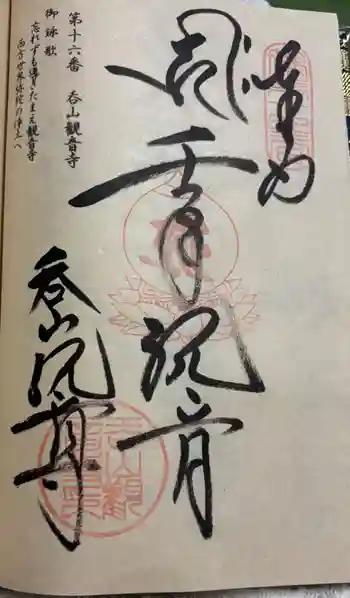 奉納
千手観音
呑山観音寺
第十六番 呑山観音寺
御詠歌
忘れずも導きたまえ観音寺
西方世界弥陀の浄土へ